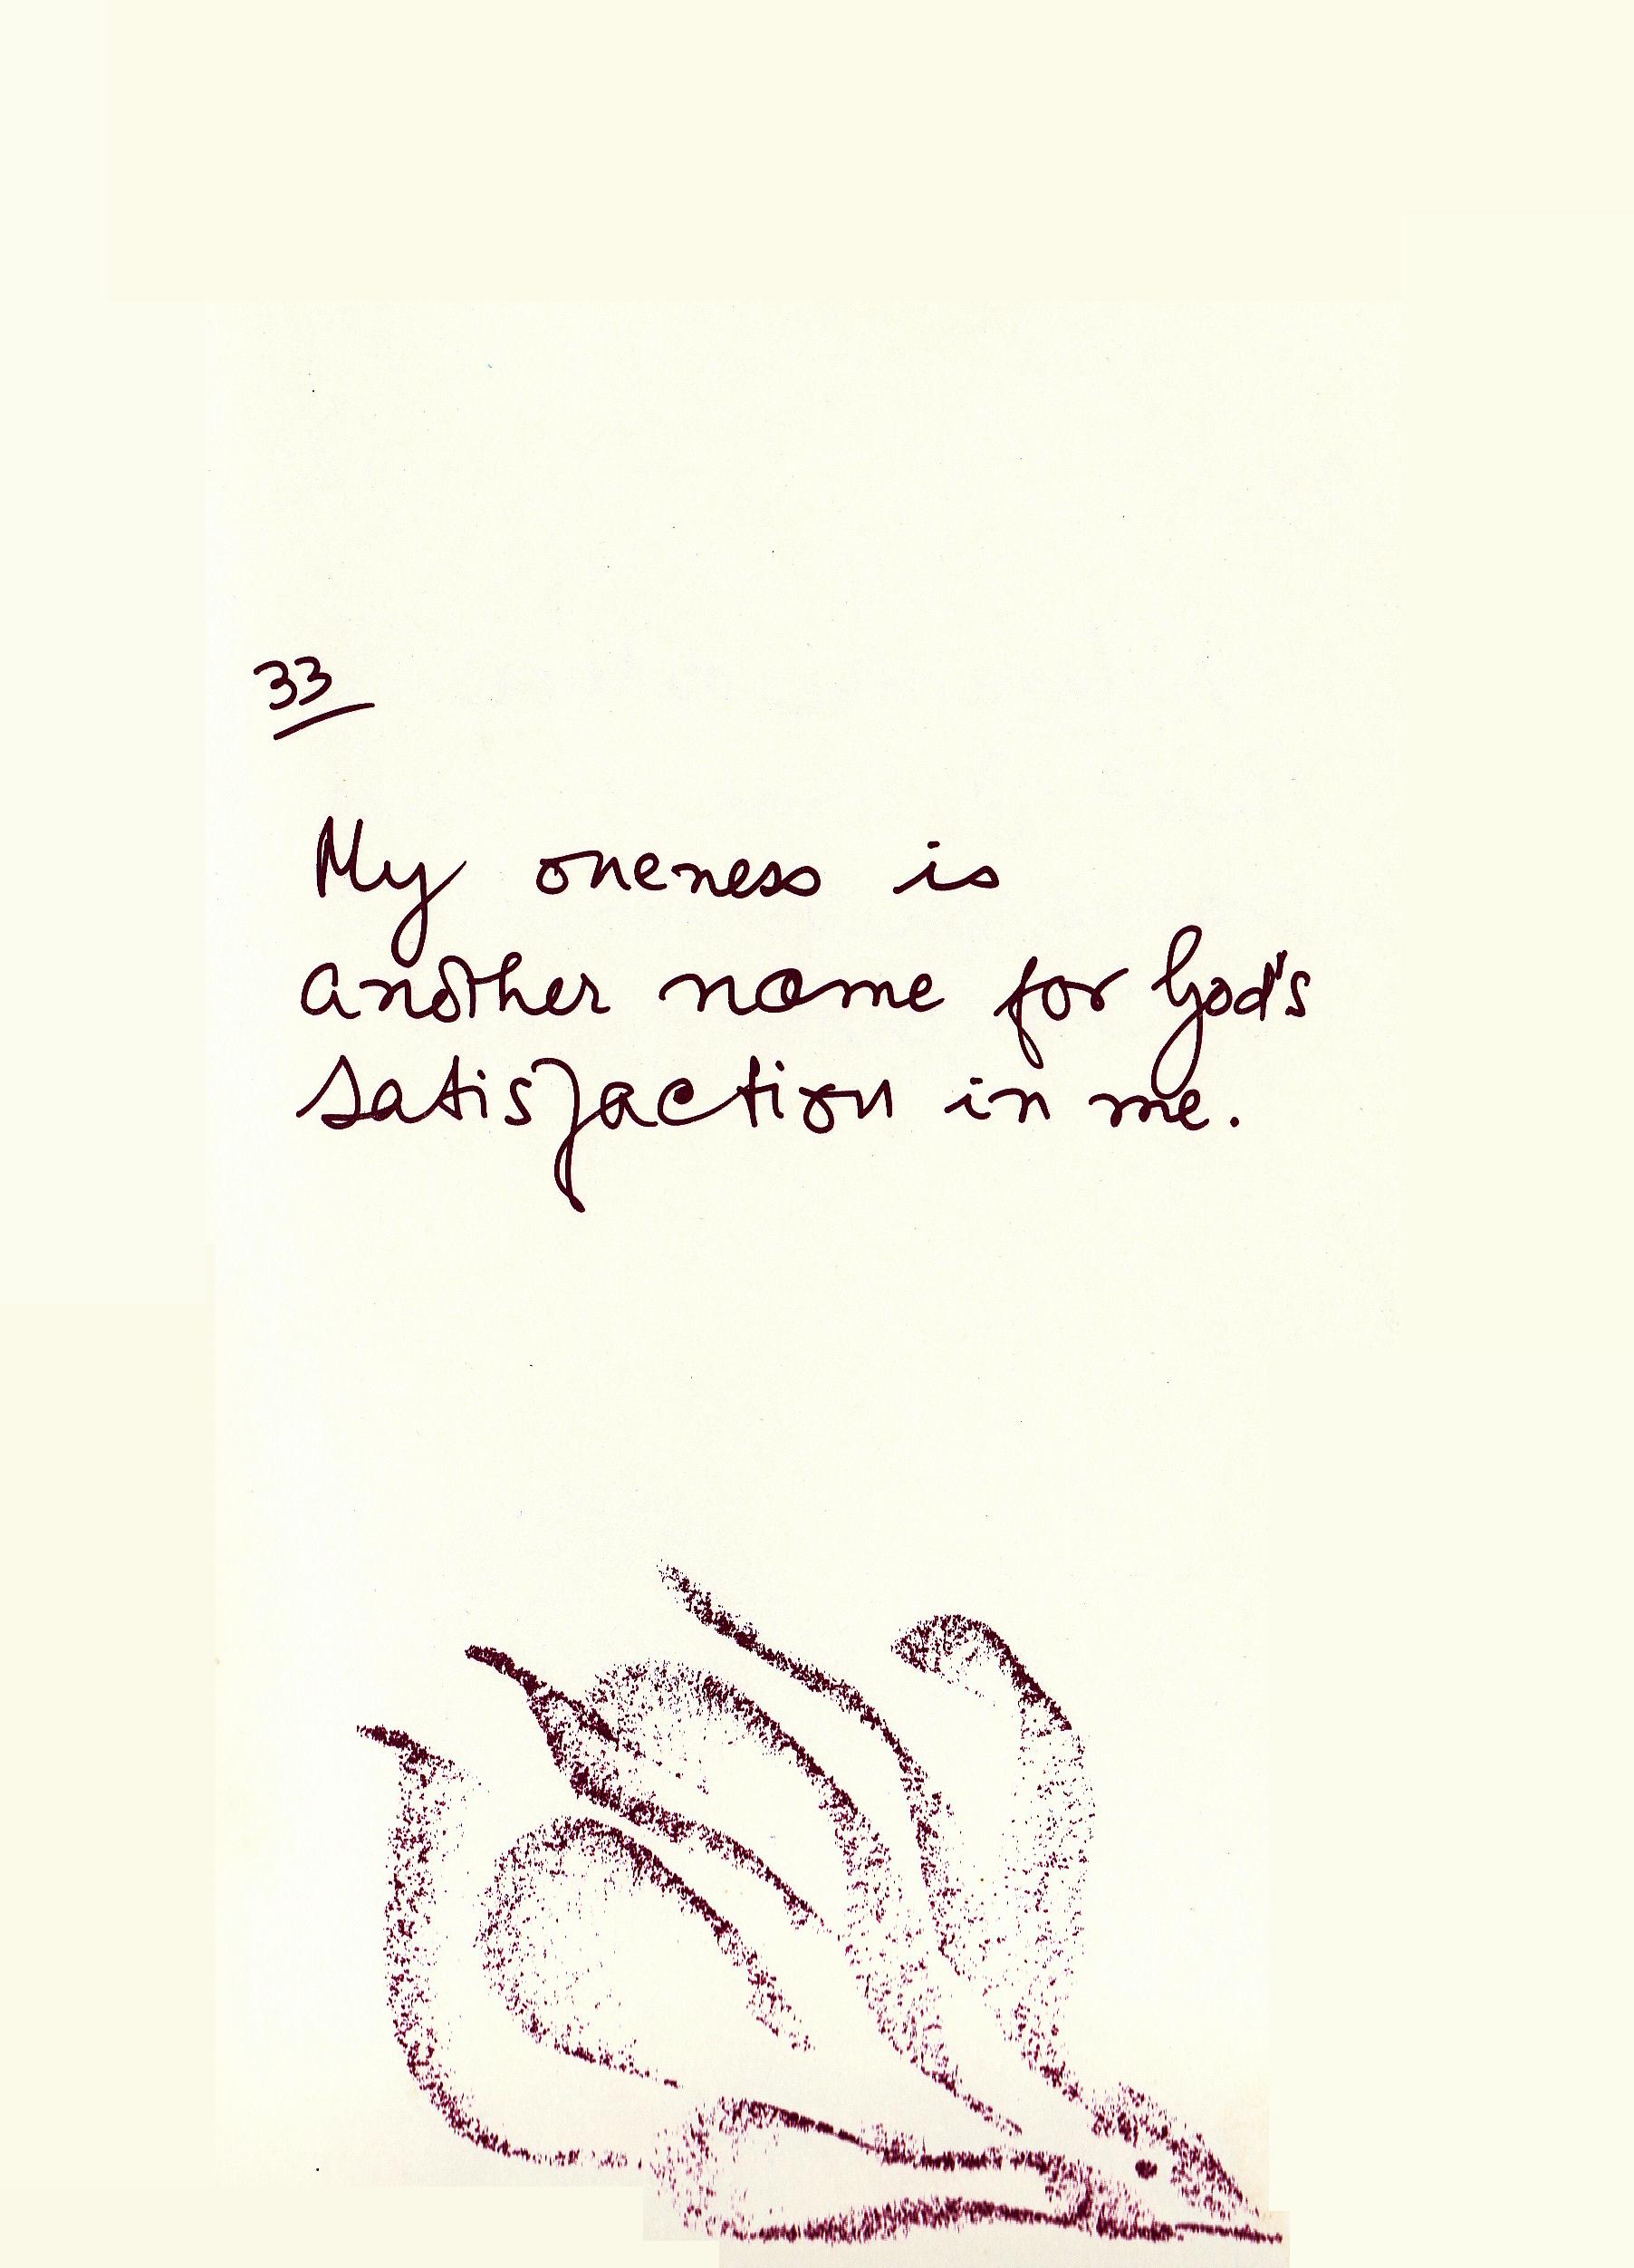 33
My oneness is
another name for God's
satisfaction in me.